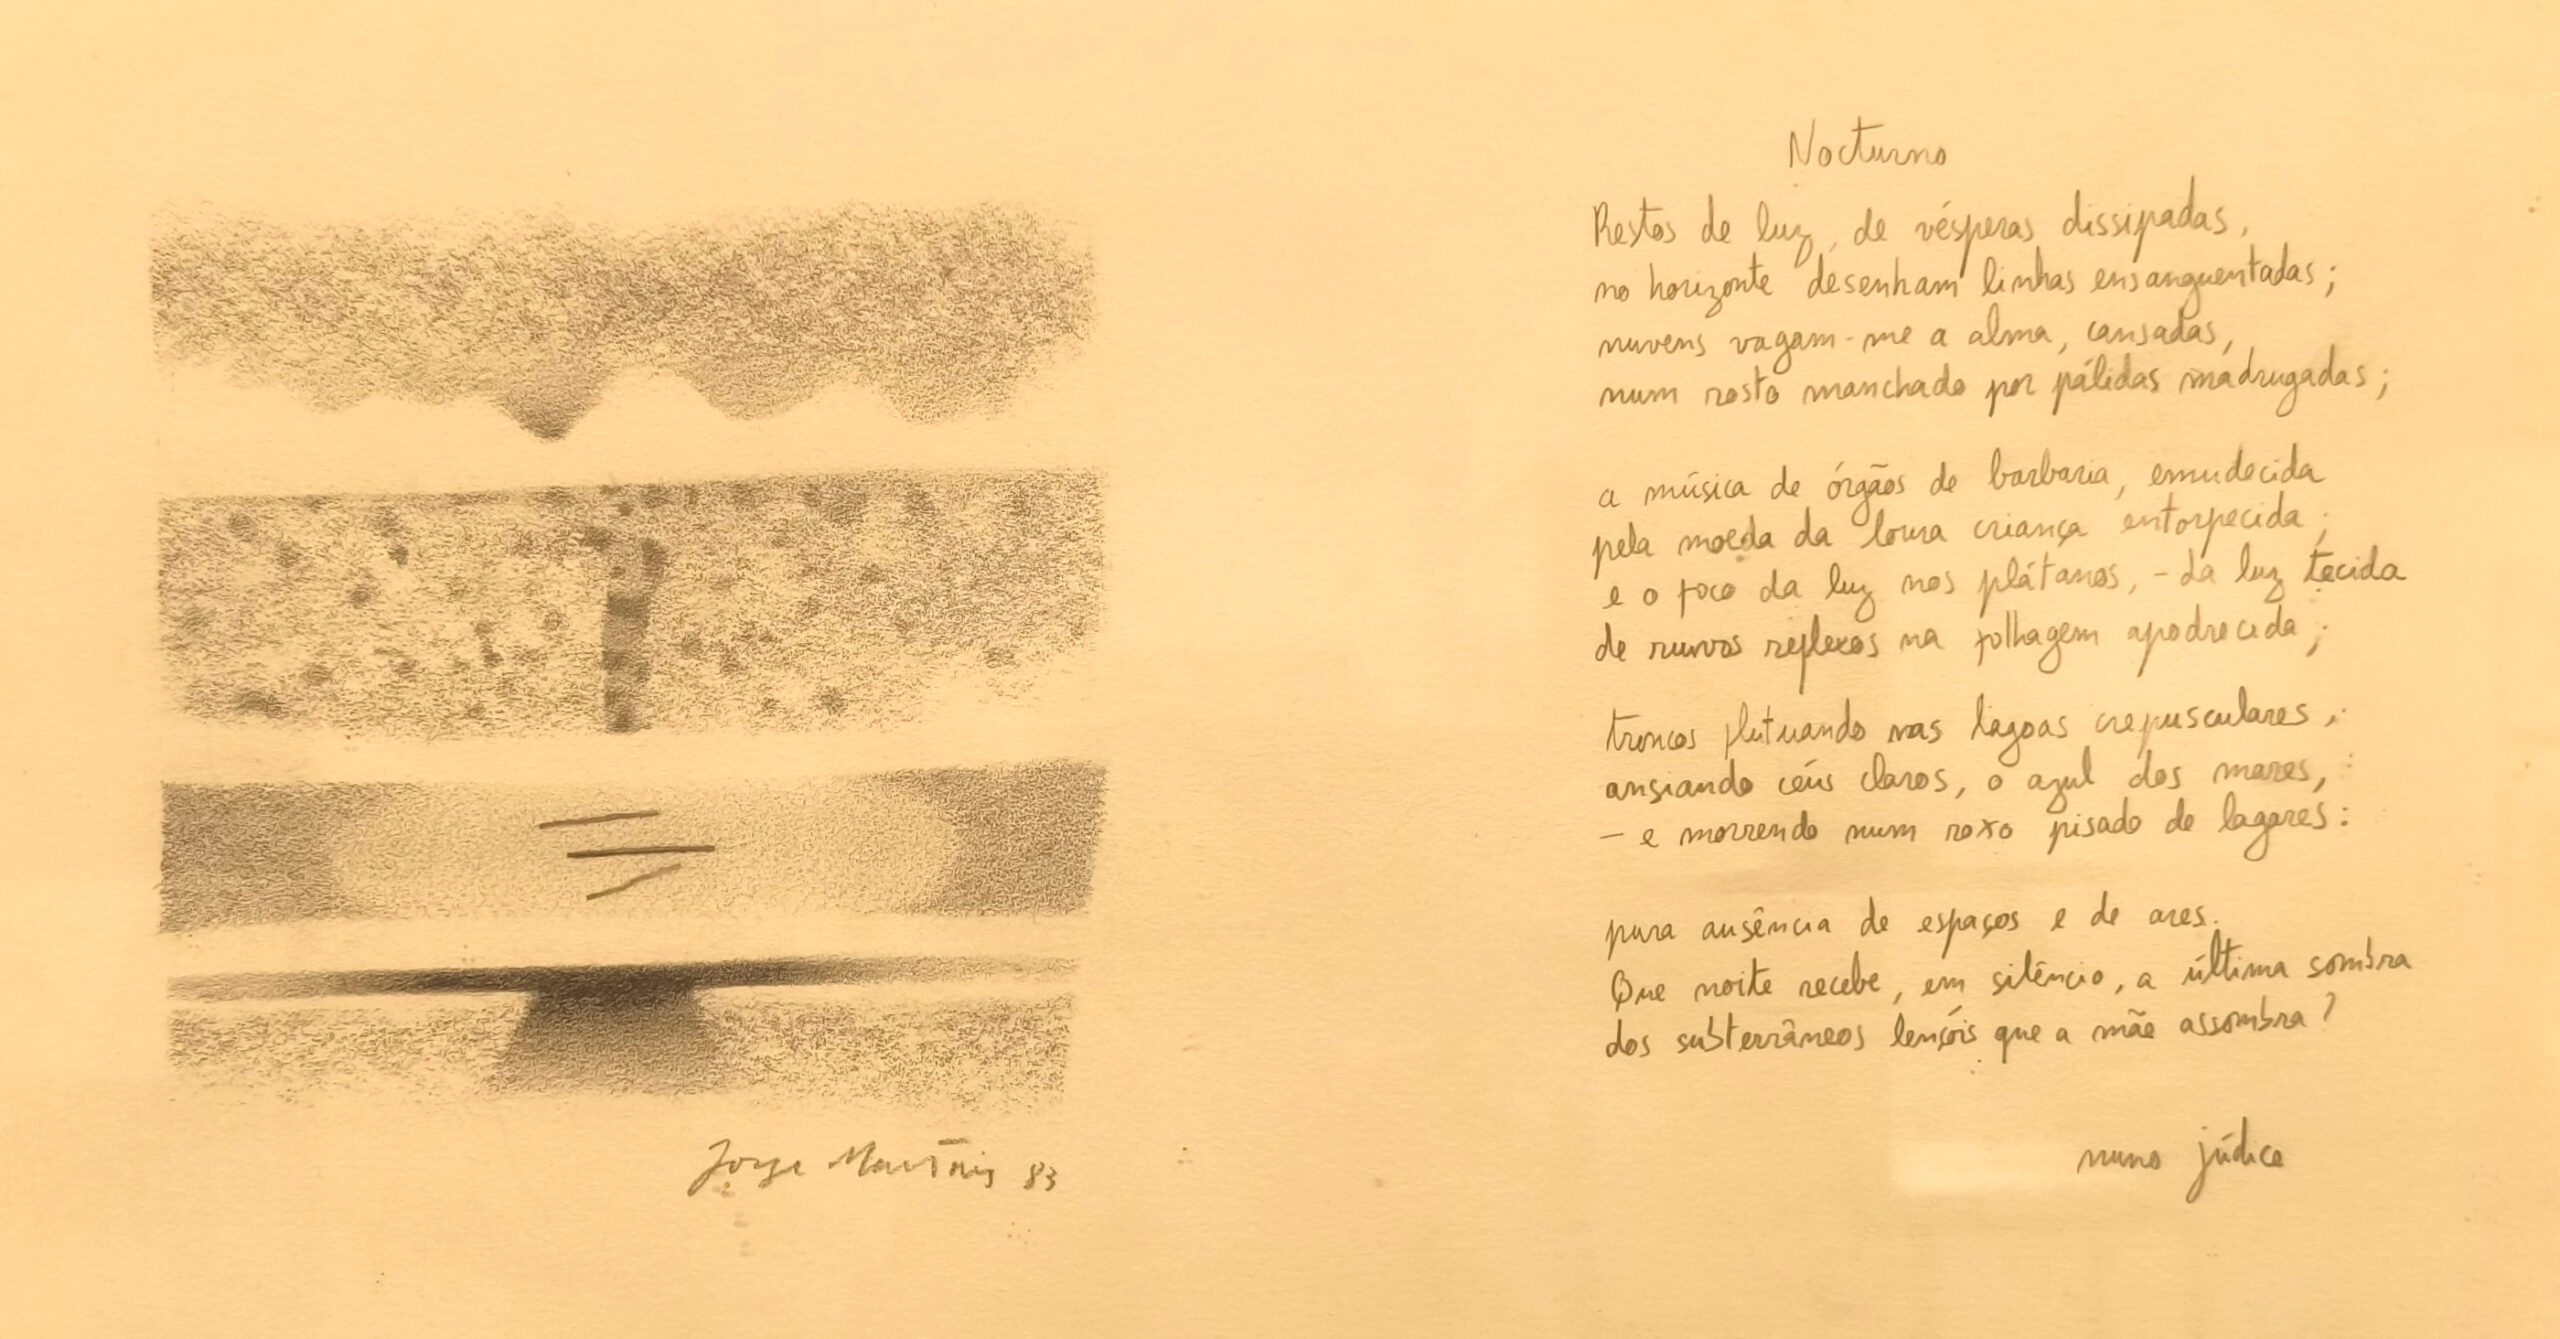 Nocturno
Restos de luz, de vésperas dissipadas,
no horizonte desenham linhas ensanguentadas;
nuvens vagam-me a alma, cansadas,
num rosto manchado por pálidas madrugadas;
a música de órgãos de barbaria, emudecida
pela moeda da loura criança entorpecida;
e o foco da luz nos plátanos, - da luz tecida
de ruivos reflexos na folhagem apodrecida;
troncos flutuando nas lagoas crepusculares,
ansiando céus claros, o azul dos mares,
- e morrendo num roxo pisado de lagares:
pura ausência de espaços e de ares.
Que noite recebe, em silêncio, a última sombra
dos subterrâneos lençóis que a mãe assombra?
nuno júdice
Jorge Martins 83